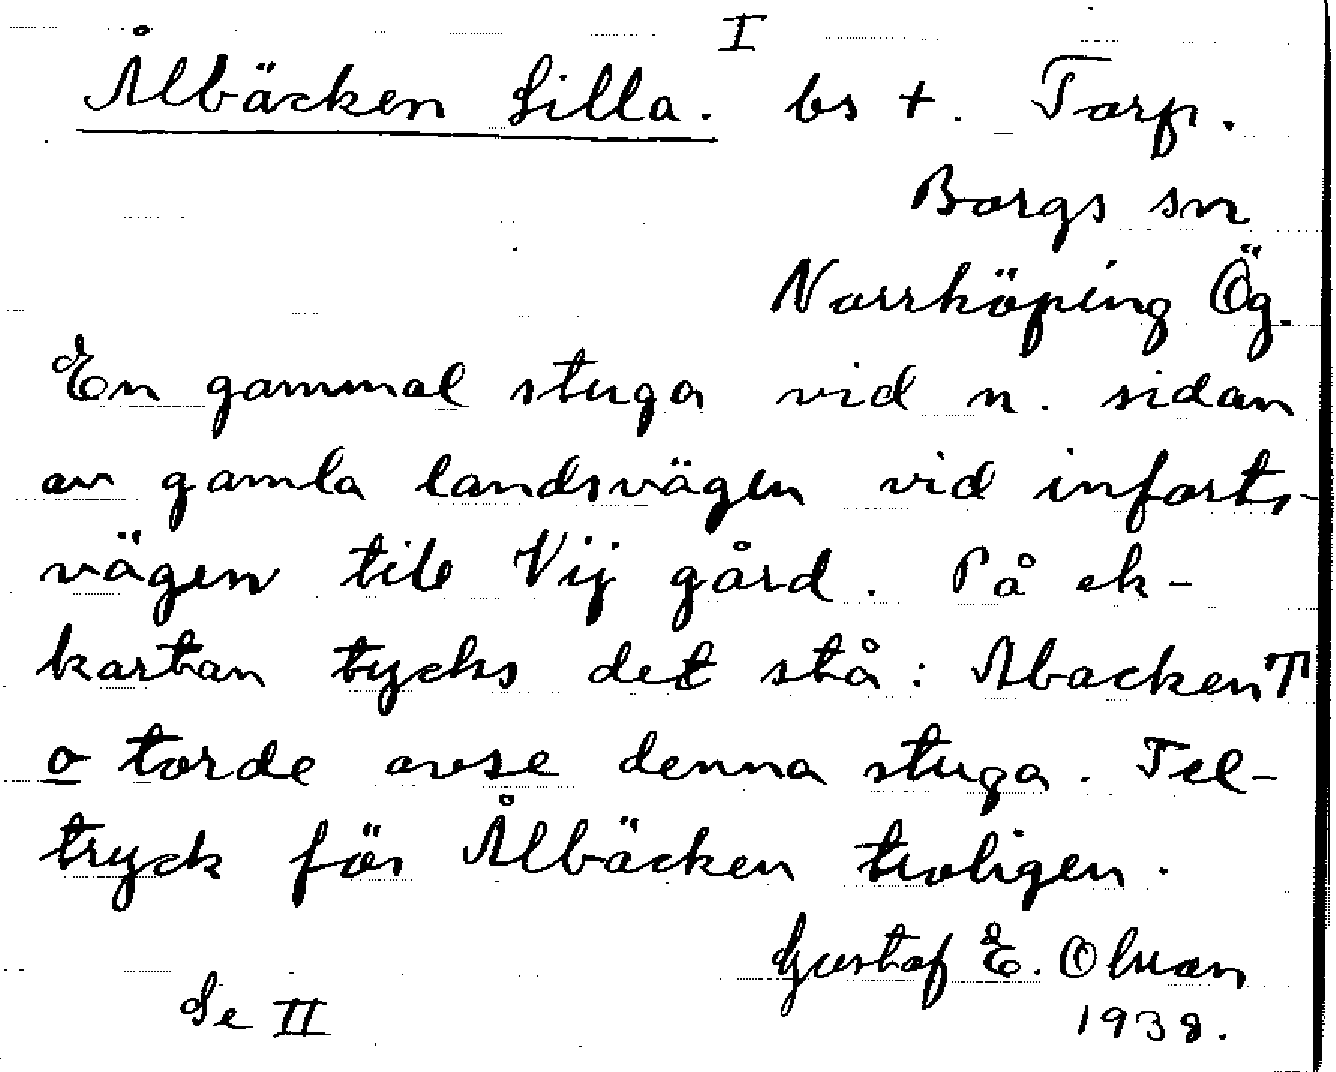 I
Ålbäcken Lilla. bs +. Torp.
Borgs sn
Norrköping Ög.
En gammal stuga vid n. sidan
av gamla landsvägen vid infarts-
vägen till Vij gård. På ek-
kartan tycks det stå: Abacken T
o torde avse denna stuga. Fel-
tryck för Ålbäcken troligen.
Gustaf E. Olsson
Se II
1938.